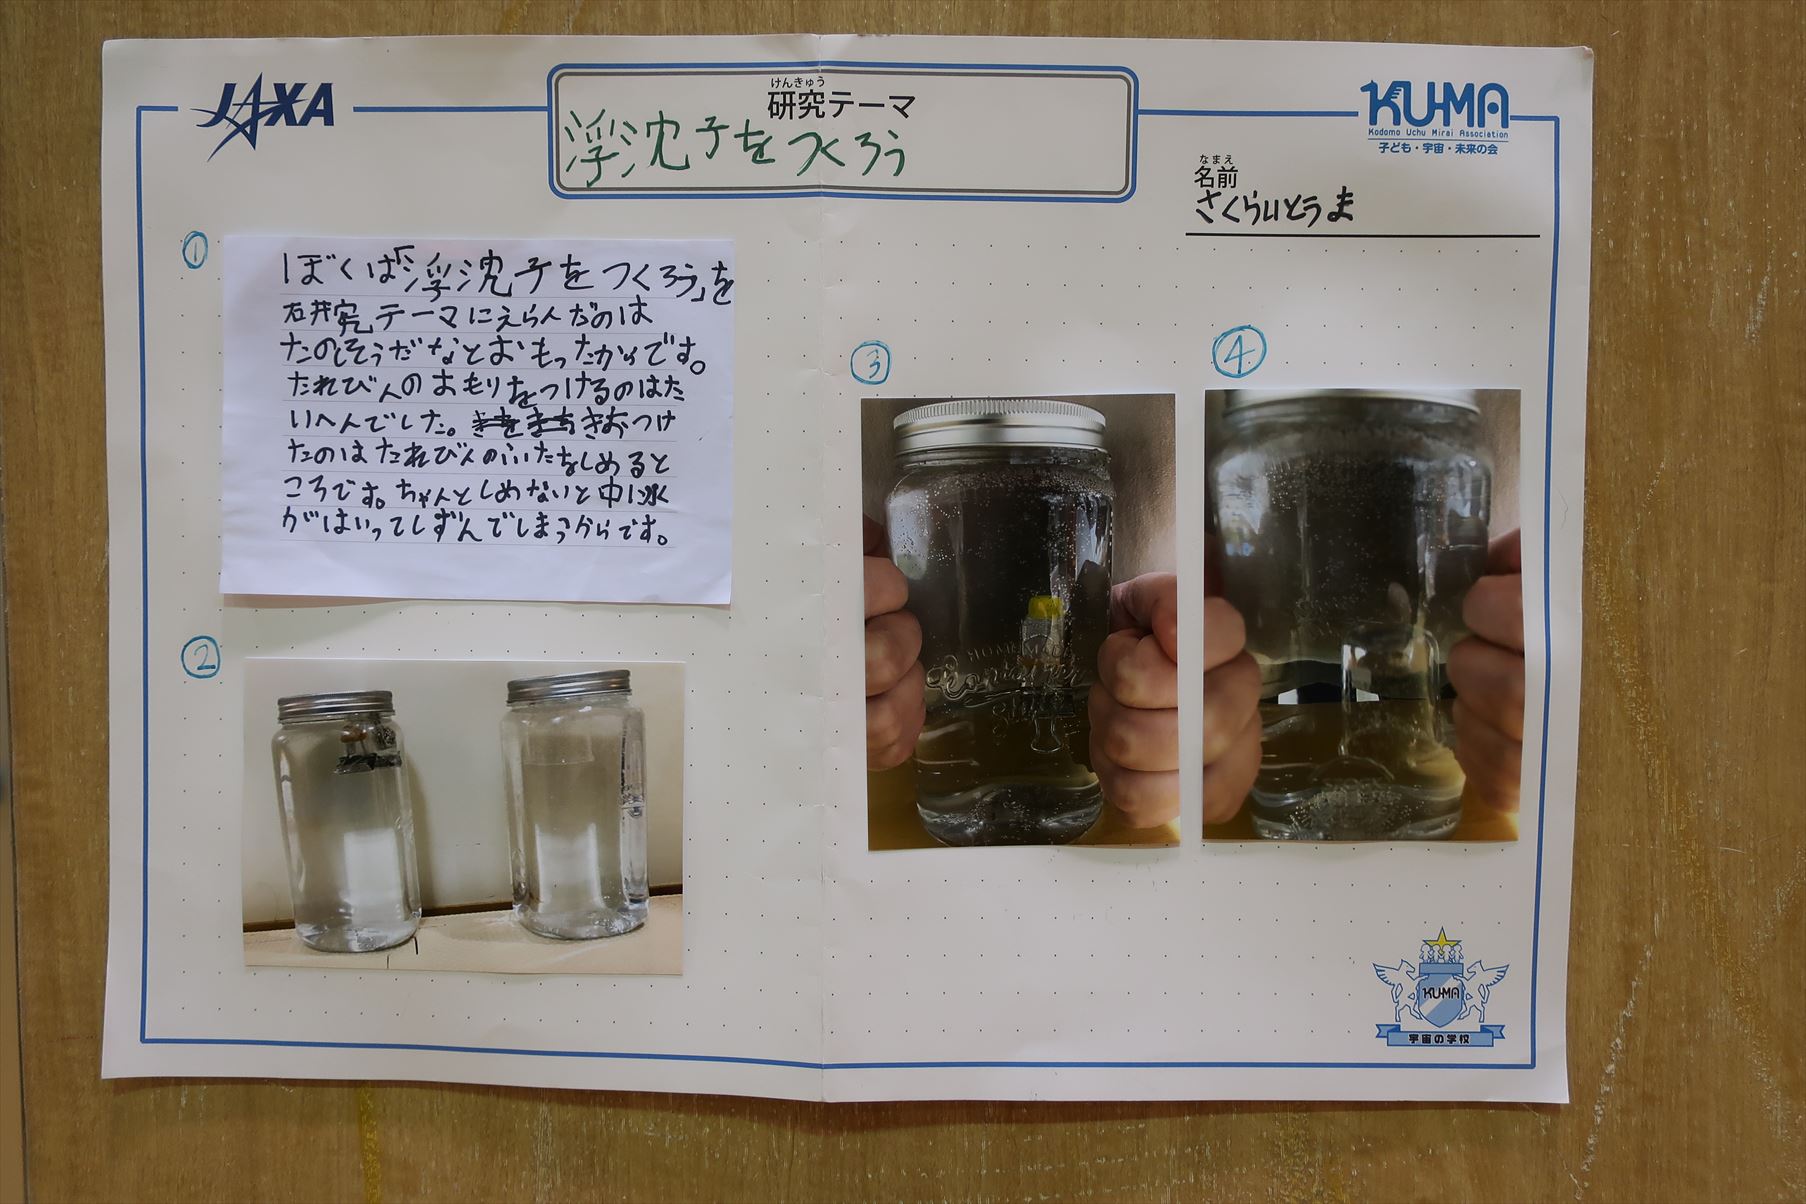 JAXA
けんきゅう
研究テーマ
浮沈子をつくろう
KU-MA
Kodomo Uchu Mirai Association
子ども・宇宙・未来の会
なまえ
名前
さくらいとうま
①
ぼくは「浮沈子をつくろう」を
研究テーマにえらんだのは
たのしそうだなとおもったからです。
たれびんのおもりをつけるのはた
いへんでした。きおつけ
たのはたれびんのふたをしめると
ころです。ちゃんとしめないと中に水
がはいってしずんでしまうからです。
②
③
HOMEMADE
④
KU-MA
宇宙の学校